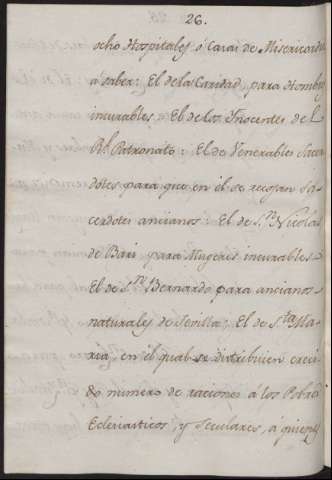 26.
ocho Hospitales ó Casas de Misericordia
á saber: El de la Caridad, para Hombres
incurables: El de los Ynocentes de el
Rl. Patronato: El de Venerables Sacer
dotes para que en él se recojan Sa-
cerdotes ancianos: El de Sn. Nicolas
de Bari para Mugeres incurables
El de Sn. Bernardo para ancianos
naturales de Sevilla: El de Sta. Ma-
ria, en el qual se distribuien creci-
do numero de raciones á los Pobres
Eclesiasticos, y Seculares, á quienes